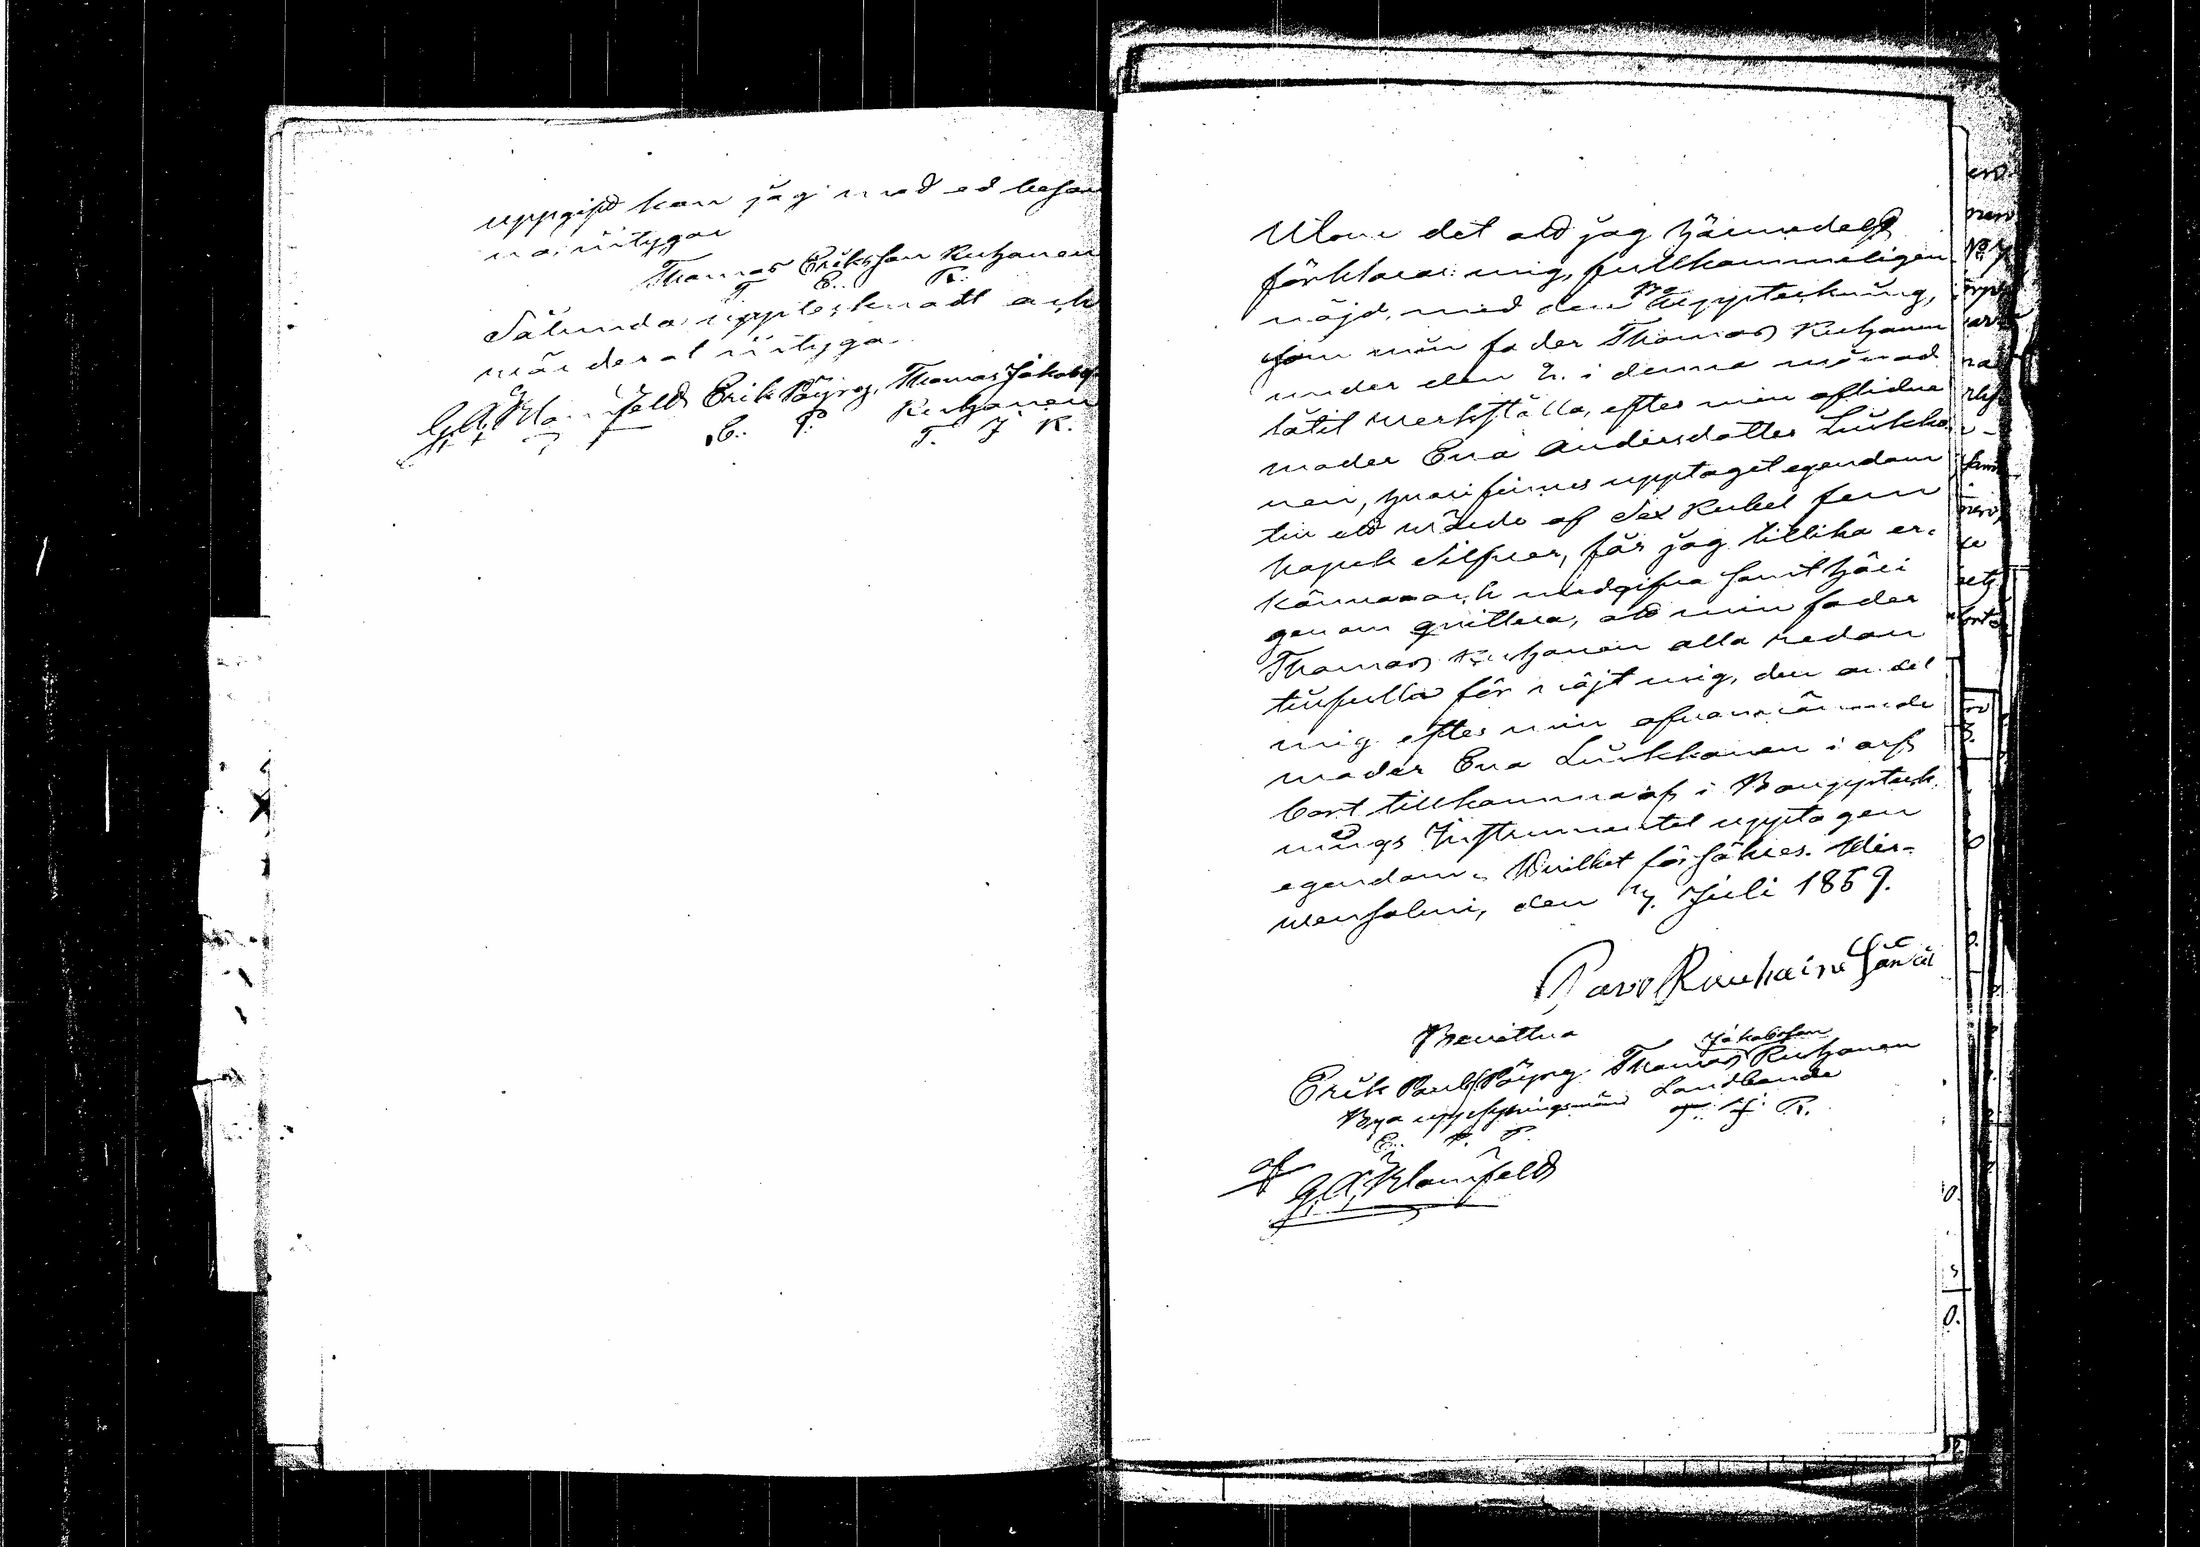 uppgift kan jag med ed bekän
na, intygar
Thomas Eriksson Ruhanen
T. E. R.
Sålunda upptecknadt och
värderat intyga
G. A. Blomfeldt Erik Pöyry, Thomas Jakobss
Ruhanen
E. P. T. J. R.
Utom det att jag härmedelst
förklarar mig fullkommeligen
nöjd, med den Bo Uppteckning,
som min fader Thomas Ruhanen
under den 2. i denna månad
låtit werkställa, efter min aflidna
moder Eva Andersdotter Luukko
nen, hvari finnes upptaget egendom
till ett wärde af Sex Rubel fem
kopek Silfver, får jag tillika er-
känna och medgifva samt häri
genom qvittera, att min fader
Thomas Ruhanen alla redan
tillfullo för nöjt mig, den andel
mig efter min ofvannämnde
moder Eva Luukkonen i arf
bort tillkomma af i Bouppteck
nings Instrumentet upptagen
egendom, Hvilket försäkras. Ider-
wensalmi, den 7. Juli 1859.
Pavo Rouhaine
Bevittna
Jakobsson
Erik Paulss Pöyry Thomas Ruhanen
Bya uppsyningsman Landbonde
E. P. P. T. J. R.
af
G. A. Blomfeldt